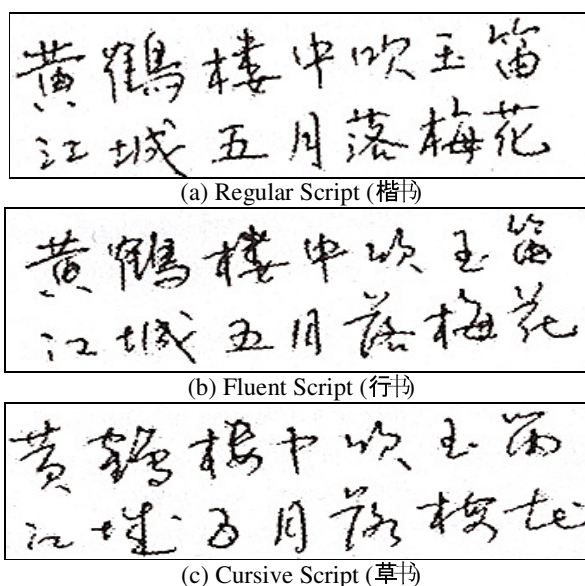 黄鹤楼中吹玉笛
江城五月落梅花
(a) Regular Script (楷书)
黄鹤楼中吹玉笛
江城五月落梅花
(b) Fluent Script (行书)
黄鹤楼中吹玉笛
江城五月落梅花
(c) Cursive Script (草书)